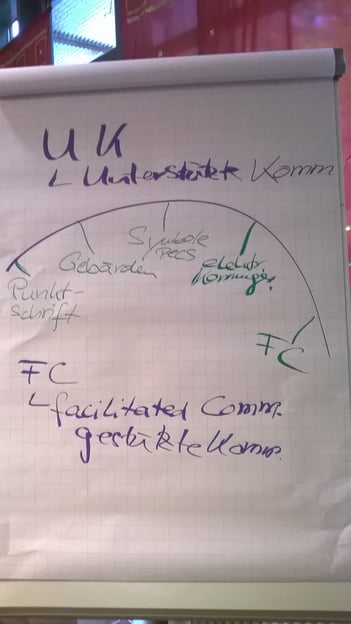 UK
Unterstützte Komm
Symbole
PECS
Gebärden
elektr.
Punkt-
schrift
FC
FC
facilitated Comm.
gestützte Komm.